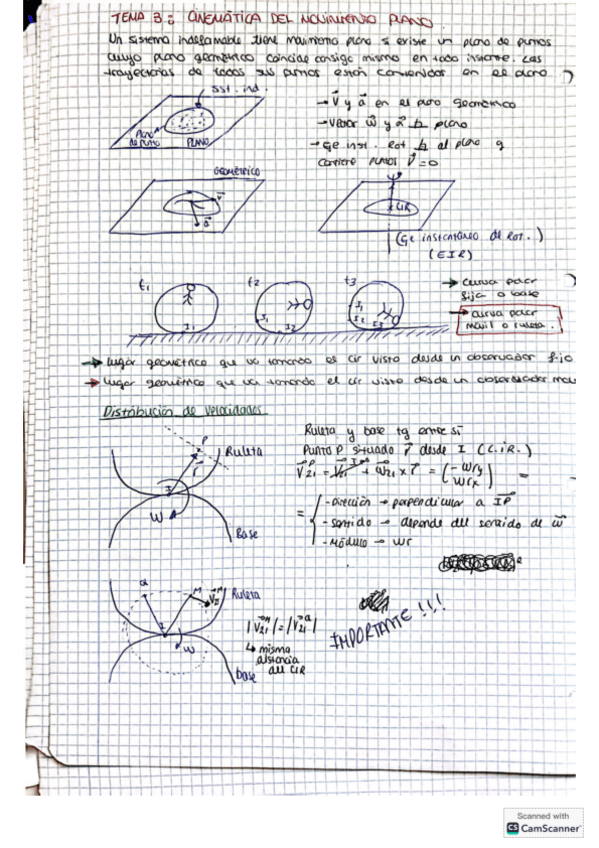 TEMA 3: CINEMÁTICA DEL MOVIMIENTO PLANO.
Un sistema indeformable tiene movimiento plano si existe un plano de puntos
cuyo plano geométrico coincide consigo mismo en todo instante. Las
trayectorias de todos sus puntos están contenidos en el plano
Sst. ind.
Plano de puntos
PLANO
→ V⃗ y a⃗ en el plano geométrico
→ Vector w⃗ y α⃗ ⊥ plano
→ Eje inst. Rot ⊥ al plano y
contiene puntos V⃗=0
GEOMÉTRICO
v⃗
a⃗
CIR
(Eje instantáneo de Rot.)
(EIR)
t1
t2
t3
I1
I1 I2
I1 I2 I3
→ Curva polar
fija o base
→ curva polar
móvil o ruleta.
→ lugar geométrico que va tomando el cir visto desde un observador fijo
→ lugar geométrico que va tomando el cir visto desde un observador
Distribución de velocidades
P
Ruleta
r⃗
I
W
Base
Ruleta y base tg entre sí
Punto P situado r⃗ desde I (C.I.R.)
V⃗21^P = V⃗21^I + w⃗21 x r⃗ = (-wry wrx) =
= { - dirección → perpendicular a IP⃗
- sentido → depende del sentido de w⃗
- módulo → wr
Q
M
Ruleta
I
W
base
|V⃗21^M| = |V⃗21^Q|
↳ misma
distancia
al CIR
IMPORTANTE!!!
Scanned with
CS CamScanner